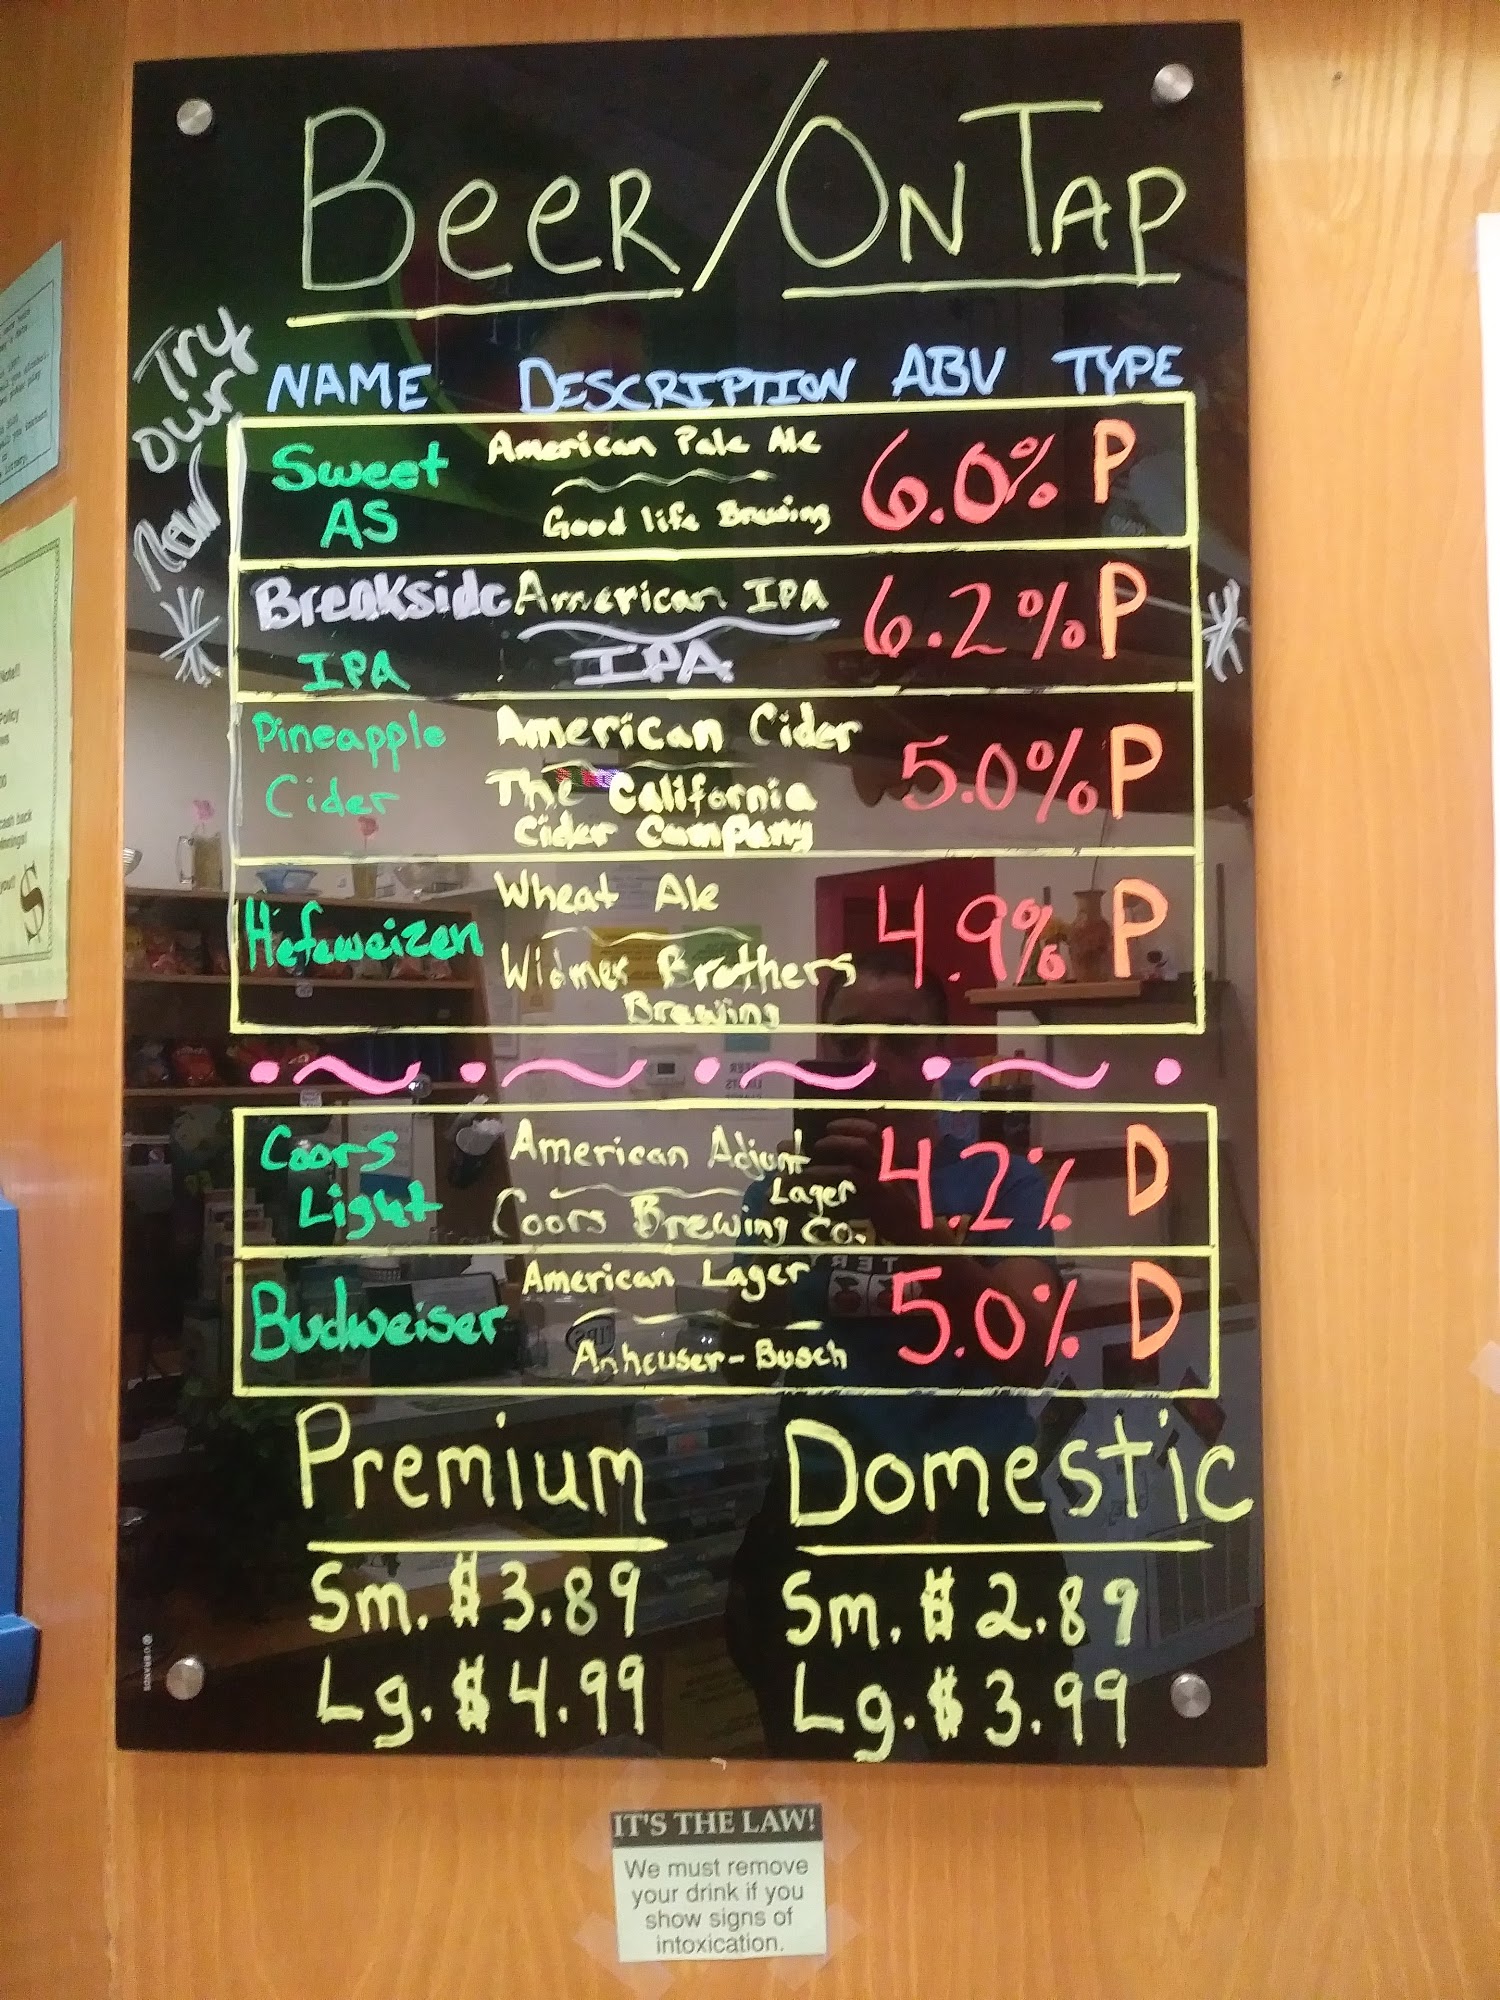 Beer/On Tap
Try
our
New
NAME DESCRIPTION ABV TYPE
Sweet
AS
American Pale Ale
Good life Brewing
6.0% P
Breakside
IPA
American IPA
IPA
6.2% P
Pineapple
Cider
American Cider
The California
Cider Company
5.0% P
Hefeweizen
Wheat Ale
Widmer Brothers
Brewing
4.9% P
Coors
Light
American Adjunt
Lager
Coors Brewing Co.
4.2% D
Budweiser
American Lager
Anheuser-Busch
5.0% D
Premium
Sm. $3.89
Lg. $4.99
Domestic
Sm. $2.89
Lg. $3.99
IT'S THE LAW!
We must remove
your drink if you
show signs of
intoxication.
Note!!
Policy
cash back
winnings!
you!!
$